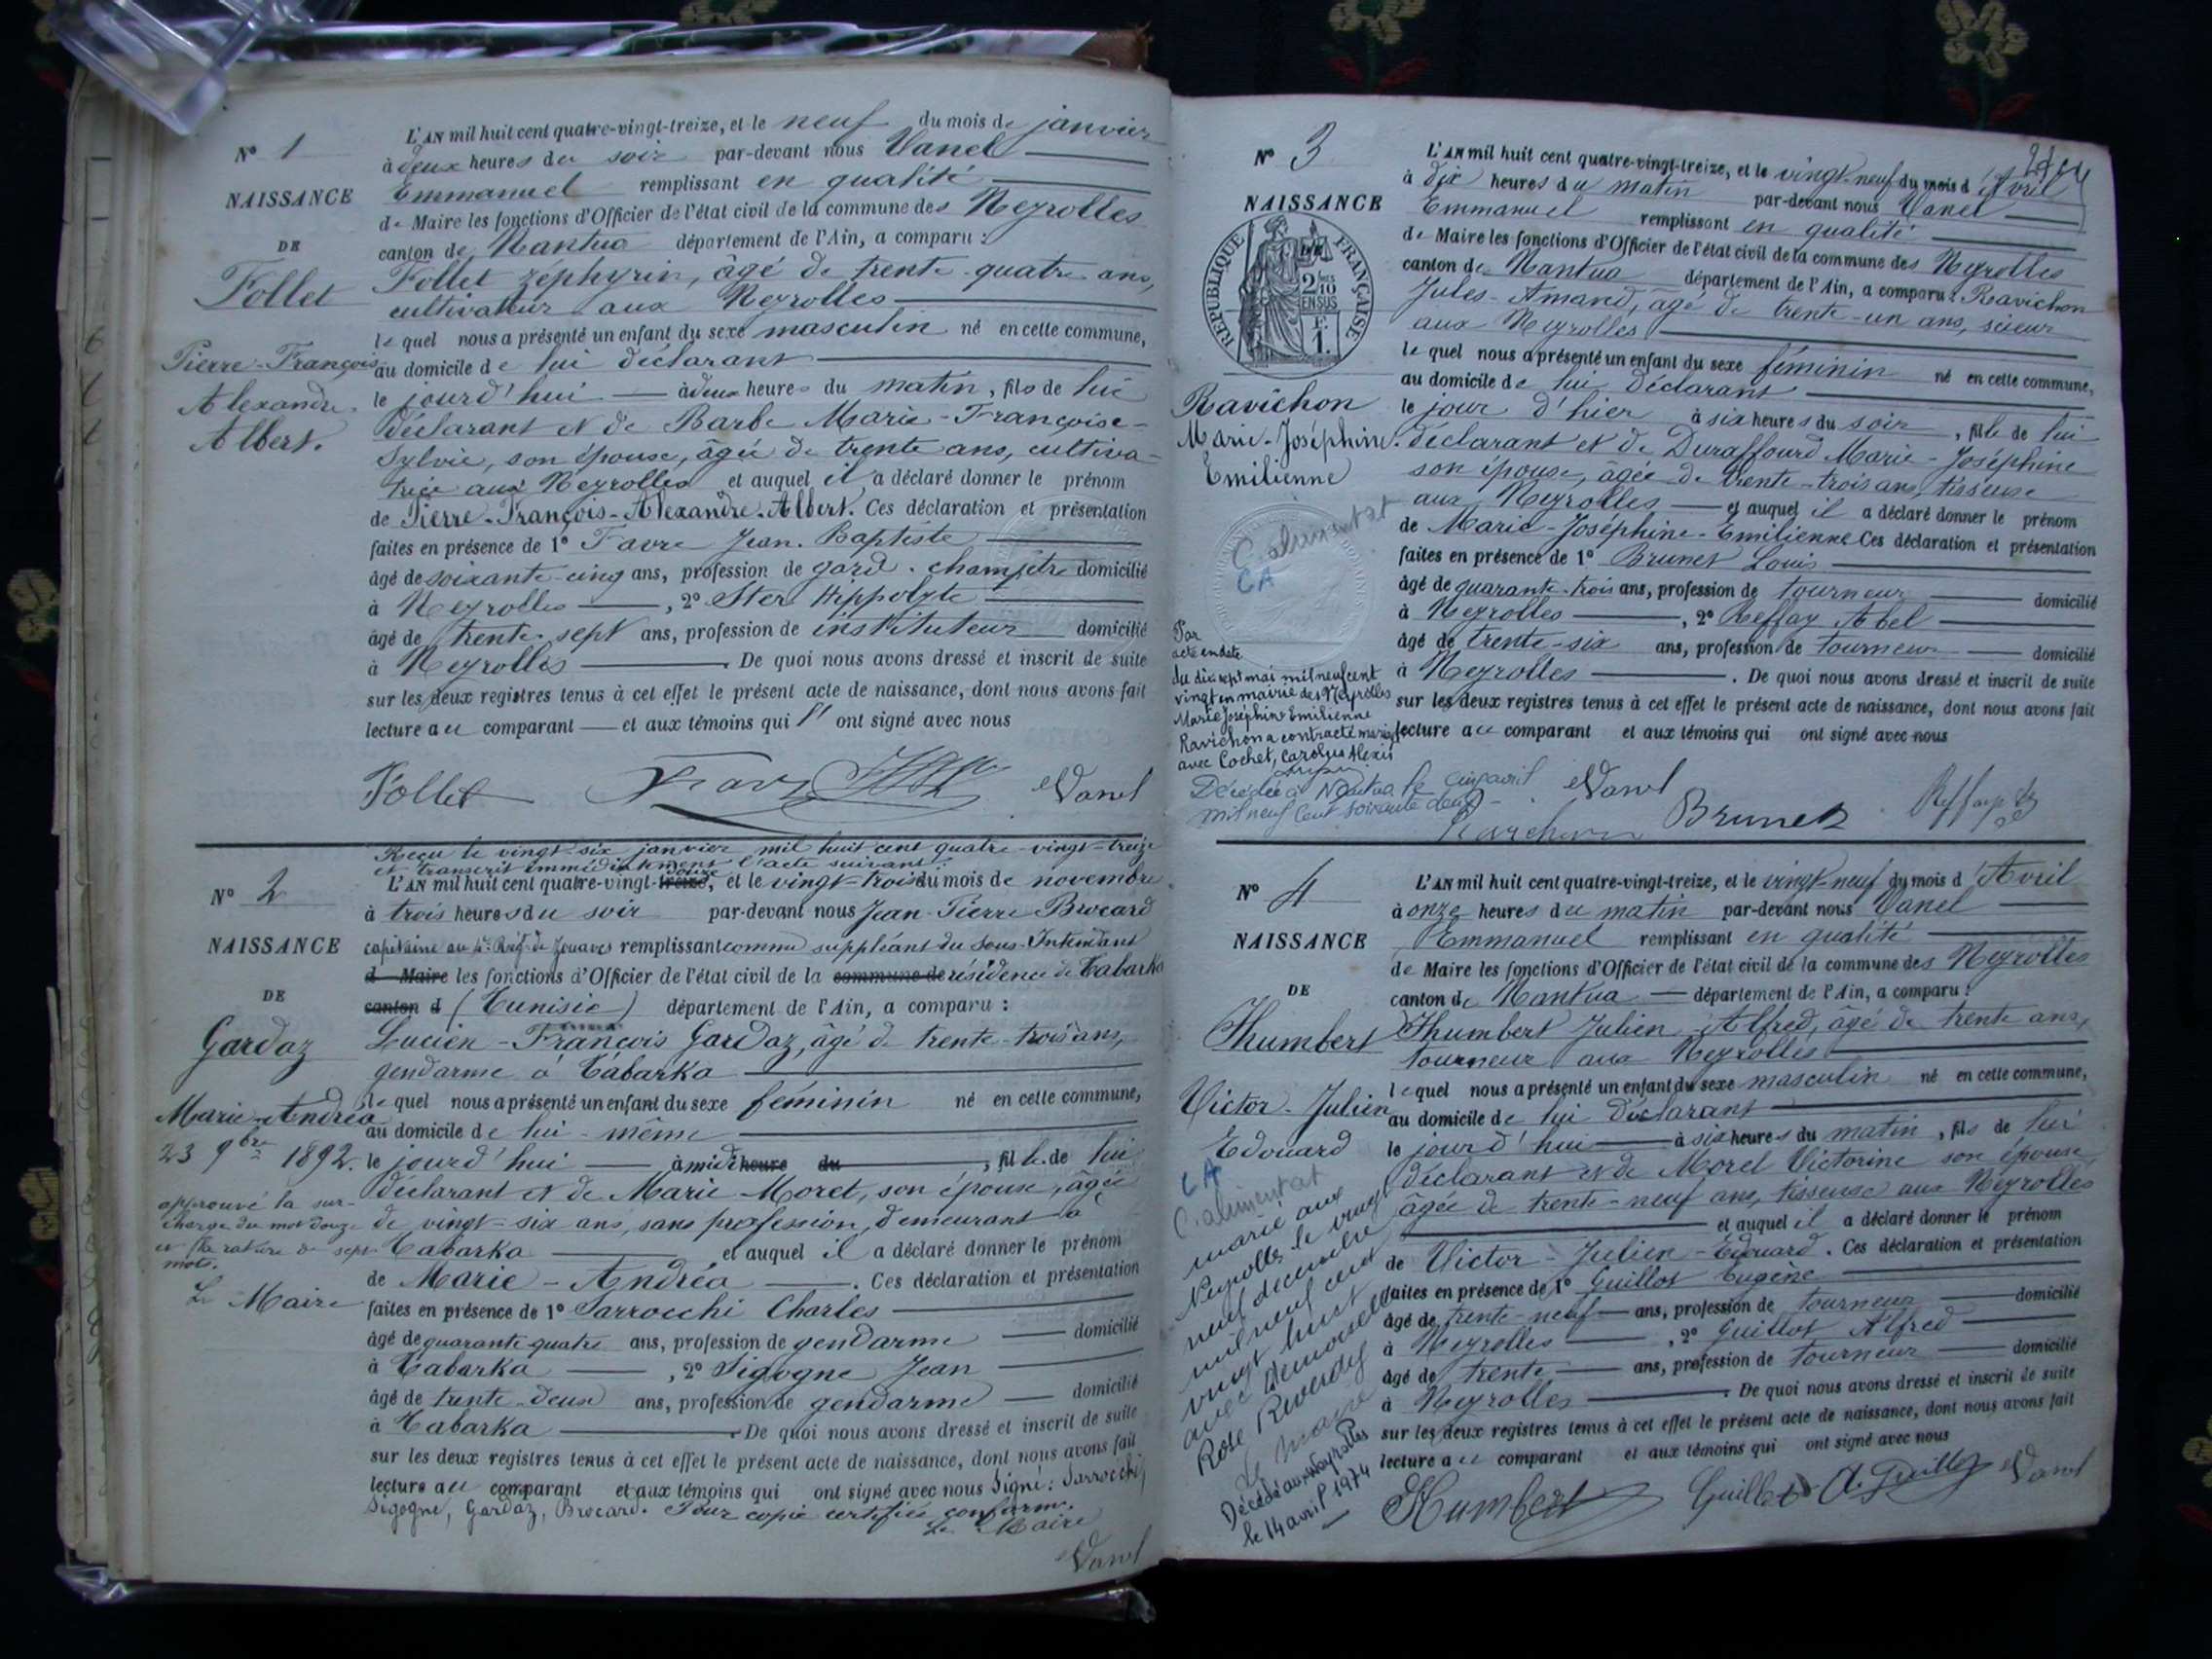 N° 1
NAISSANCE
DE
Follet
Pierre-François
Alexandre
Albert.
L'AN mil huit cent quatre-vingt-treize, et le neuf du mois de janvier
à deux heures du soir par-devant nous Vanel
Emmanuel remplissant en qualité
de Maire les fonctions d'Officier de l'état civil de la commune des Neyrolles
canton de Nantua département de l'Ain, a comparu :
Follet zéphyrin, âgé de trente-quatre ans,
cultivateur aux Neyrolles
lequel nous a présenté un enfant du sexe masculin né en cette commune,
au domicile de lui déclarant
le jourd'hui à deux heures du matin, fils de lui
déclarant et de Barbe Marie-Françoise-
Sylvie, son épouse, âgée de trente ans, cultiva-
trice aux Neyrolles et auquel il a déclaré donner le prénom
de Pierre-François-Alexandre-Albert. Ces déclaration et présentation
faites en présence de 1° Favre Jean-Baptiste
âgé de soixante-cinq ans, profession de gard-champêtre domicilié
à Neyrolles, 2° Ster Hippolyte
âgé de trente-sept ans, profession de instituteur domicilié
à Neyrolles. De quoi nous avons dressé et inscrit de suite
sur les deux registres tenus à cet effet le présent acte de naissance, dont nous avons fait
lecture au comparant et aux témoins qui l' ont signé avec nous
Follet Favre EVanel
N° 2
NAISSANCE
DE
Gardaz
Marie-Andréa
23 9bre 1892.
approuvé la sur-
charge du mot douze
et la rature de sept
mots.
Le Maire
Reçu le vingt-six janvier mil huit cent quatre-vingt-treize
et transcrit immédiatement l'acte suivant :
douze
L'AN mil huit cent quatre-vingt-treize, et le vingt-trois du mois de novembre
à trois heures du soir par-devant nous Jean-Pierre Brocard
capitaine au 4e Rég. de Zouaves remplissant comme suppléant du Sous-Intendant
d Maire les fonctions d'Officier de l'état civil de la commune de résidence de Tabarka
canton d (Tunisie) département de l'Ain, a comparu :
Lucien-François Gardaz, âgé de trente-trois ans,
gendarme à Tabarka
lequel nous a présenté un enfant du sexe féminin né en cette commune,
au domicile de lui-même
le jourd'hui à midi heure du, fille de lui
déclarant et de Marie Moret, son épouse, âgée
de vingt-six ans, sans profession, demeurant à
Tabarka et auquel il a déclaré donner le prénom
de Marie-Andréa. Ces déclaration et présentation
faites en présence de 1° Sarrocchi Charles
âgé de quarante quatre ans, profession de gendarme domicilié
à Tabarka, 2° Sigogne Jean
âgé de trente-deux ans, profession de gendarme domicilié
à Tabarka. De quoi nous avons dressé et inscrit de suite
sur les deux registres tenus à cet effet le présent acte de naissance, dont nous avons fait
lecture au comparant et aux témoins qui ont signé avec nous Signé : Sarrocchi,
Sigogne, Gardaz, Brocard. Pour copie certifiée conforme.
Le Maire
EVanel
N° 3
NAISSANCE
DE
RÉPUBLIQUE FRANÇAISE
2/10
EN SUS
F.
1.
Ravichon
Marie-Joséphine-
Emilienne
C. alimentat
CA
Par
acte en date
du dix sept mai mil neuf cent
vingt en mairie des Neyrolles
Marie Joséphine Emilienne
Ravichon a contracté mariage
avec Cochet, Carolus Alexis
Décédée à Nantua le cinq avril
mil neuf cent soixante deux
L'AN mil huit cent quatre-vingt-treize, et le vingt-neuf du mois d'Avril
à dix heures du matin par-devant nous Vanel
Emmanuel remplissant en qualité
de Maire les fonctions d'Officier de l'état civil de la commune des Neyrolles
canton de Nantua département de l'Ain, a comparu : Ravichon
Jules-Amand, âgé de trente-un ans, scieur
aux Neyrolles
lequel nous a présenté un enfant du sexe féminin né en cette commune,
au domicile de lui déclarant
le jour d'hier à six heures du soir, fille de lui
déclarant et de Duraffourd Marie-Joséphine
son épouse, âgée de trente-trois ans, tisseuse
aux Neyrolles et auquel il a déclaré donner le prénom
de Marie-Joséphine-Emilienne Ces déclaration et présentation
faites en présence de 1° Brunet Louis
âgé de quarante-trois ans, profession de tourneur domicilié
à Neyrolles, 2° Reffay Abel
âgé de trente-six ans, profession de tourneur domicilié
à Neyrolles. De quoi nous avons dressé et inscrit de suite
sur les deux registres tenus à cet effet le présent acte de naissance, dont nous avons fait
lecture au comparant et aux témoins qui ont signé avec nous
EVanel
Ravichon Brunet Reffay
N° 4
NAISSANCE
DE
Humbert
Victor-Julien
Edouard
CA
C. alimentat
marié aux
Neyrolles le vingt
neuf décembre
mil neuf cent
vingt huit
avec Demoiselle
Rose Reverdy
Le Maire
Décédé aux Neyrolles
le 14 avril 1974
L'AN mil huit cent quatre-vingt-treize, et le vingt-neuf du mois d'Avril
à onze heures du matin par-devant nous Vanel
Emmanuel remplissant en qualité
de Maire les fonctions d'Officier de l'état civil de la commune des Neyrolles
canton de Nantua département de l'Ain, a comparu :
Humbert Julien-Alfred, âgé de trente ans,
tourneur aux Neyrolles
lequel nous a présenté un enfant du sexe masculin né en cette commune,
au domicile de lui déclarant
le jourd'hui à six heures du matin, fils de lui
déclarant et de Morel Victorine son épouse
âgée de trente-neuf ans, tisseuse aux Neyrolles
et auquel il a déclaré donner le prénom
de Victor-Julien-Edouard. Ces déclaration et présentation
faites en présence de 1° Guillot Eugène
âgé de trente-neuf ans, profession de tourneur domicilié
à Neyrolles, 2° Guillot Alfred
âgé de trente ans, profession de tourneur domicilié
à Neyrolles. De quoi nous avons dressé et inscrit de suite
sur les deux registres tenus à cet effet le présent acte de naissance, dont nous avons fait
lecture au comparant et aux témoins qui ont signé avec nous
Humbert Guillot A. Guillot EVanel